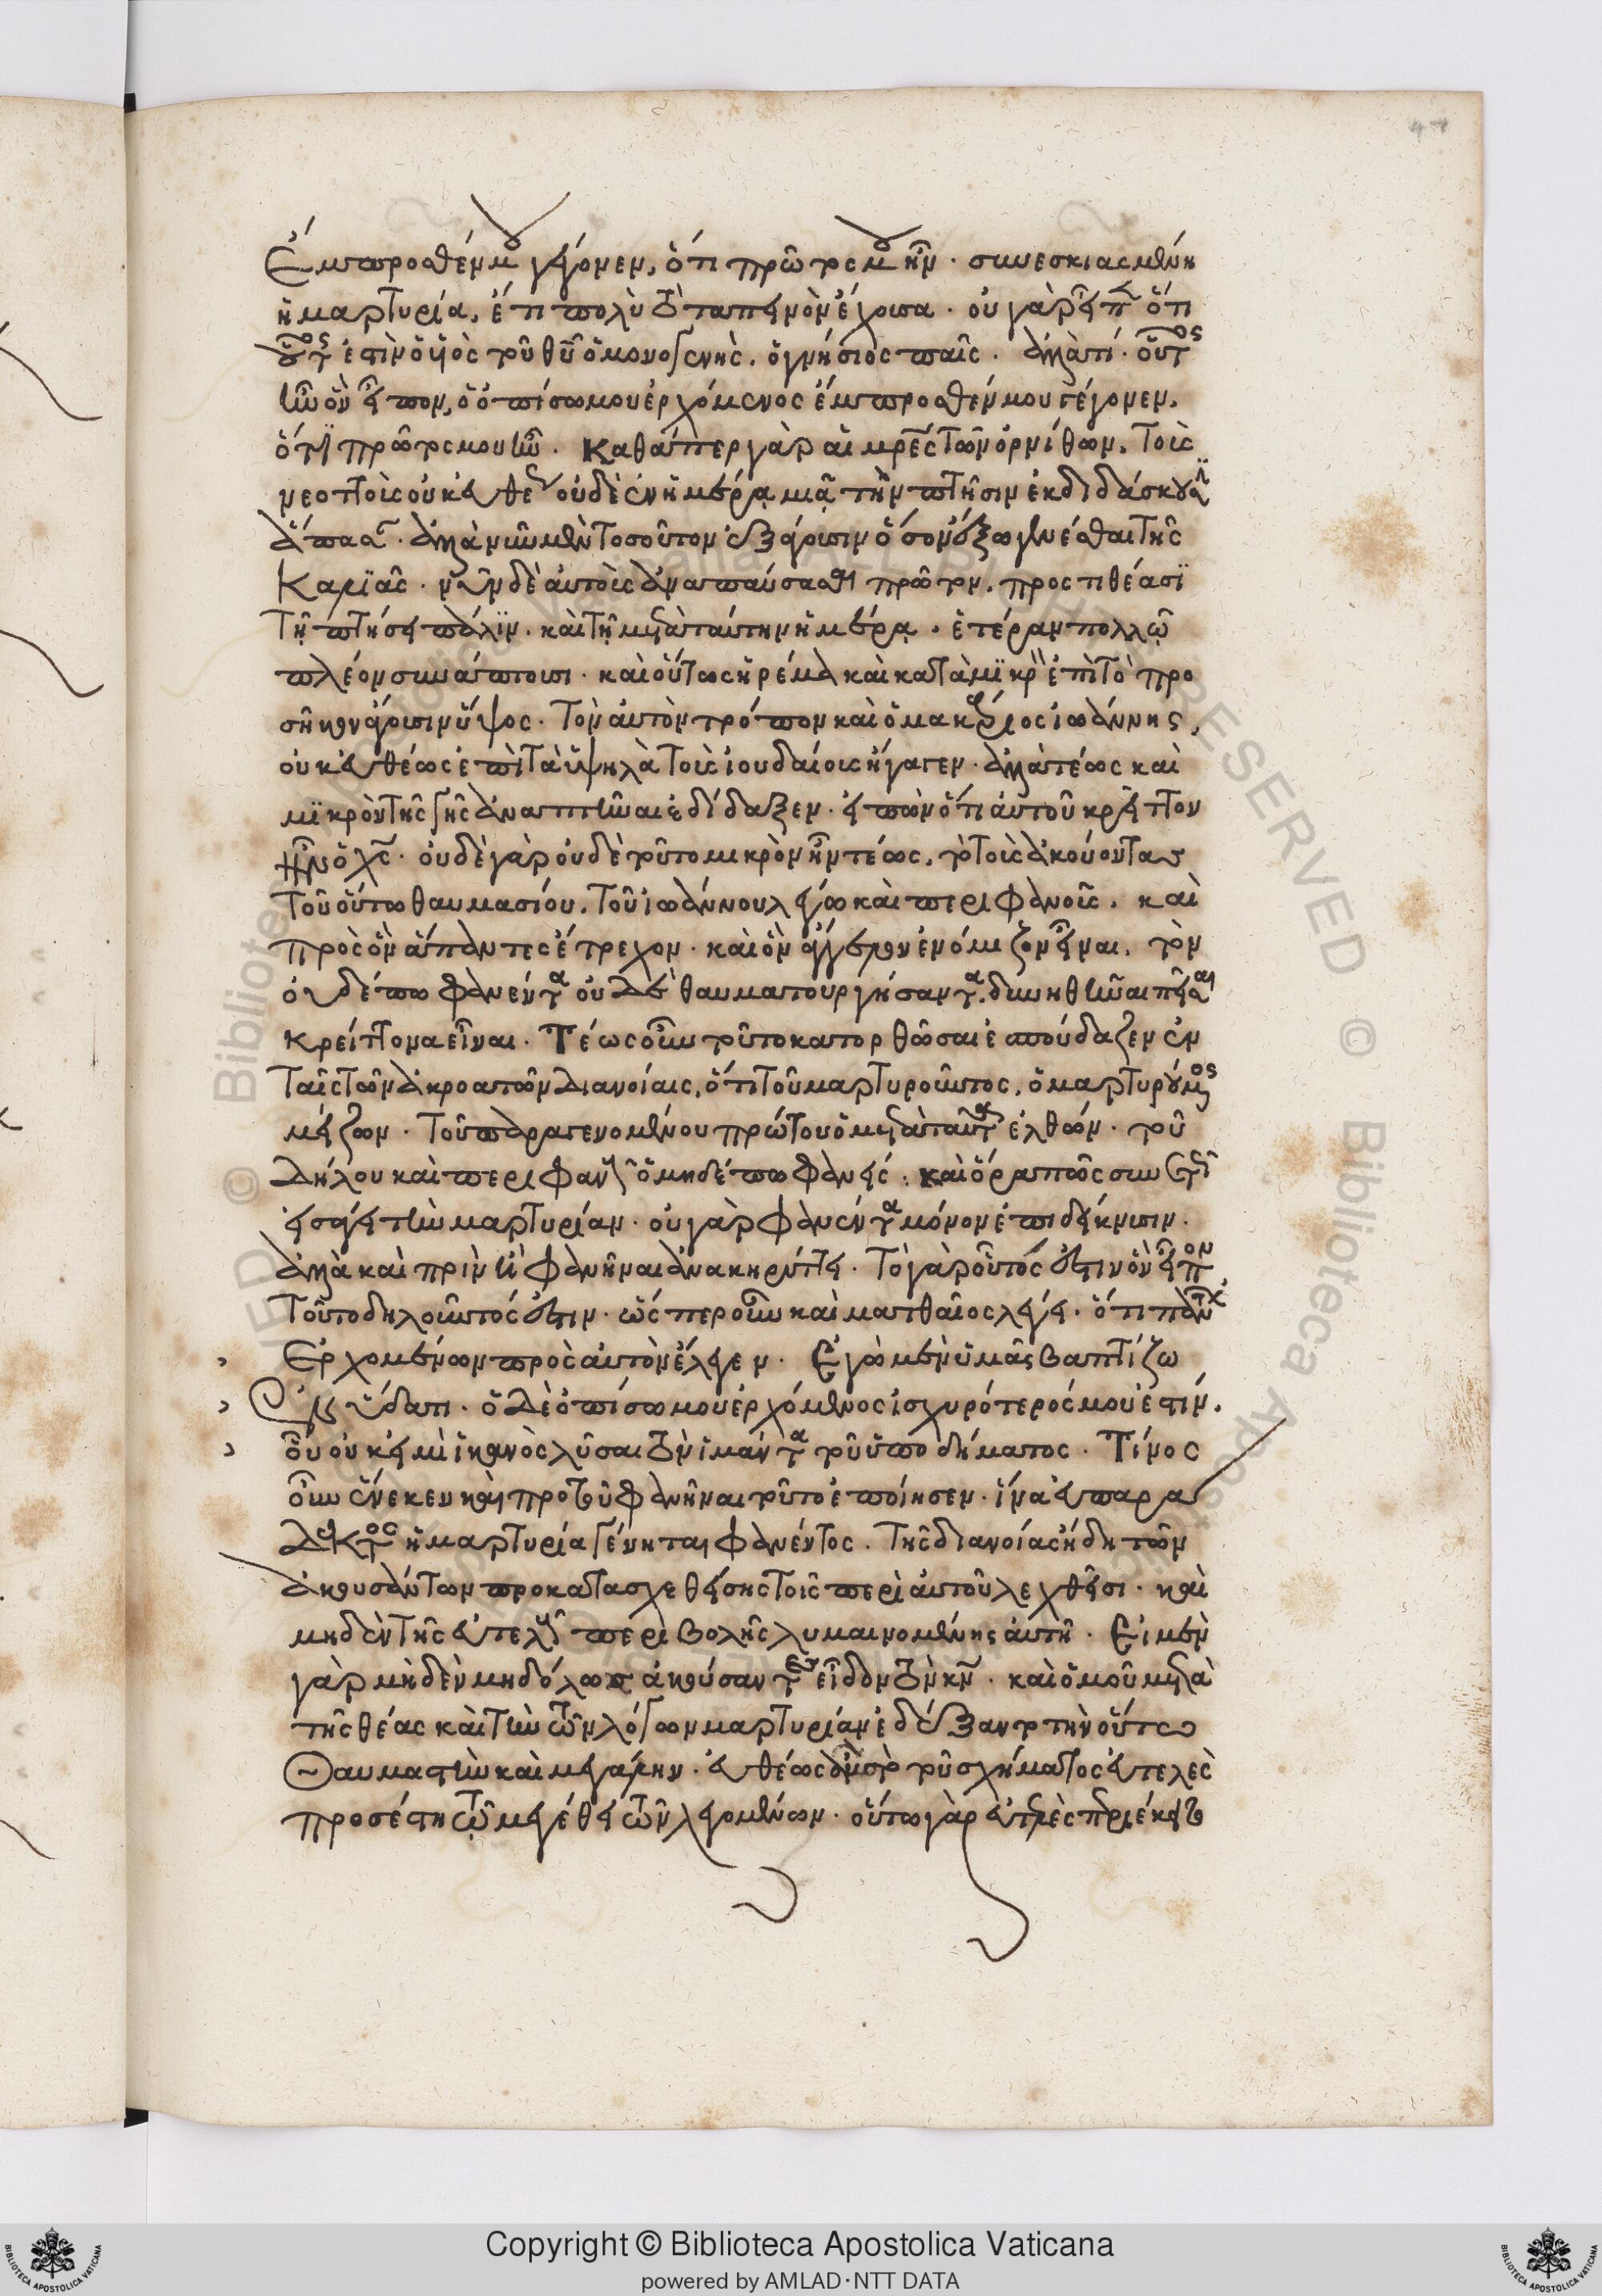 ἔμπροσθέν μου γέγονεν, ὅτι πρῶτός μου ἦν· συνεσκιασμένη
ἡ μαρτυρία, ἔτι πολὺ τὸ ταπεινὸν ἔχουσα· οὐ γὰρ εἶπεν ὅτι
οὗτος ἐστὶν ὁ υἱὸς τοῦ θῦ ὁ μονογενὴς, ὁ γνήσιος παῖς· ἀλλὰ τί· οὗτος
ἦν ὃν εἶπον, ὁ ὀπίσω μου ἐρχόμενος ἔμπροσθέν μου γέγονεν,
ὅτι πρῶτός μου ἦν· Καθάπερ γὰρ αἱ μρ̅ες τῶν ὀρνίθων, τοῖς
νεοττοῖς οὐκ εὐθέως οὐδὲ ἐν ἡμέρᾳ μιᾷ τὴν πτῆσιν ἐκδιδάσκουσιν
ἅπασαν· ἀλλὰ νῦν μὲν τοσοῦτον ἐξάγουσιν ὅσον ἔξω γενέσθαι τῆς
καλιᾶς· νῦν δὲ αὐτοῖς ἀναπαύσασθαι πρῶτον, προστιθέασϊ
τῇ πτήσει πάλϊν· καὶ τῇ μετὰ ταύτην ἡμέρᾳ, ἑτέραν πολλῷ
πλέον συνάπτουσι· καὶ οὕτως ἠρέμα καὶ κατὰ μϊκρὸν ἐπὶ τὸ προ
σῆκον ἄγουσιν ὕψος· Τὸν αὐτὸν τρόπον καὶ ὁ μακάριος ἰωάννης,
οὐκ εὐθέως ἐπὶ τὰ ὑψηλὰ τοὺς ἰουδαίους ἤγαγεν· ἀλλὰ τέως καὶ
μϊκρὸν τῆς γῆς ἀναπτῆναι ἐδίδαξεν· εἰπὼν ὅτι αὐτοῦ κρεῖττον
ἦν ὁ χς̅· οὐδὲ γὰρ οὐδὲ τοῦτο μικρὸν ἦν τέως, τὸ τοὺς ἀκούοντας
τοῦ οὕτω θαυμασίου, τοῦ ἰωάννου λέγω καὶ περιφανοῦς, καὶ
πρὸς ὃν ἅπαντες ἔτρεχον· καὶ ὃν ἄγγελον ἐνόμιζον εἶναι, τὸν
οὐδέπω φανέντα οὐδὲ θαυματουργήσαντα, δυνηθῆναι πεῖσαι
κρείττονα εἶναι· Τέως οὖν τοῦτο κατορθῶσαι ἐσπούδαζεν ἐν
ταῖς τῶν ἀκροατῶν διανοίαις, ὅτι τοῦ μαρτυροῦντος, ὁ μαρτυρούμενος
μείζων· τοῦ παραγενομένου πρώτου ὁ μετὰ ταῦτα ἐλθών· τοῦ
δήλου καὶ περιφανοῦς ὁ μηδέπω φανείς· καὶ ὅρα πῶς συνετῶς
εἰσάγει τὴν μαρτυρίαν· οὐ γὰρ φανέντα μόνον ἐπιδείκνυσιν·
ἀλλὰ καὶ πρὶν ἢ φανῆναι ἀνακηρύττει· Τὸ γὰρ οὗτός ἐστιν ὃν εἶπον
τοῦτο δηλοῦντός ἐστιν· ὥσπερ οὖν καὶ ματθαῖος λέγει· ὅτι πάντων
ἐρχομένων πρὸς αὐτὸν ἔλεγεν· Ἐγὼ μὲν ὑμᾶς βαπτίζω
ἐν ὕδατι· ὁ δὲ ὀπίσω μου ἐρχόμενος ἰσχυρότερός μου ἐστίν.
οὗ οὐκ εἰμὶ ἱκανὸς λῦσαι τὸν ἱμάντα τοῦ ὑποδήματος· Τίνος
οὖν ἕνεκεν καὶ πρὸ τοῦ φανῆναι τοῦτο ἐποίησεν· ἵνα εὐπαρά
δεκτος ἡ μαρτυρία γένηται φανέντος· τῆς διανοίας ἤδη τῶν
ἀκουσάντων προκατασχεθείσης τοῖς περὶ αὐτοῦ λεχθεῖσι· καὶ
μηδὲν τῆς εὐτελοῦς περιβολῆς λυμαινομένης αὐτῇ· Εἰ μὲν
γὰρ μηδὲν μηδόλως ἀκούσαντες εἶδον τὸν κν̅· καὶ ὁμοῦ μετὰ
τῆς θέας καὶ τὴν τῶν λόγων μαρτυρίαν ἐδέξαντο τὴν οὕτω
θαυμαστὴν καὶ μεγάλην· εὐθέως ἂν τὸ τοῦ σχήματος εὐτελὲς
προσέστη τῷ μεγέθει τῶν λεγομένων· οὕτω γὰρ εὐτελὲς περιέκειτο